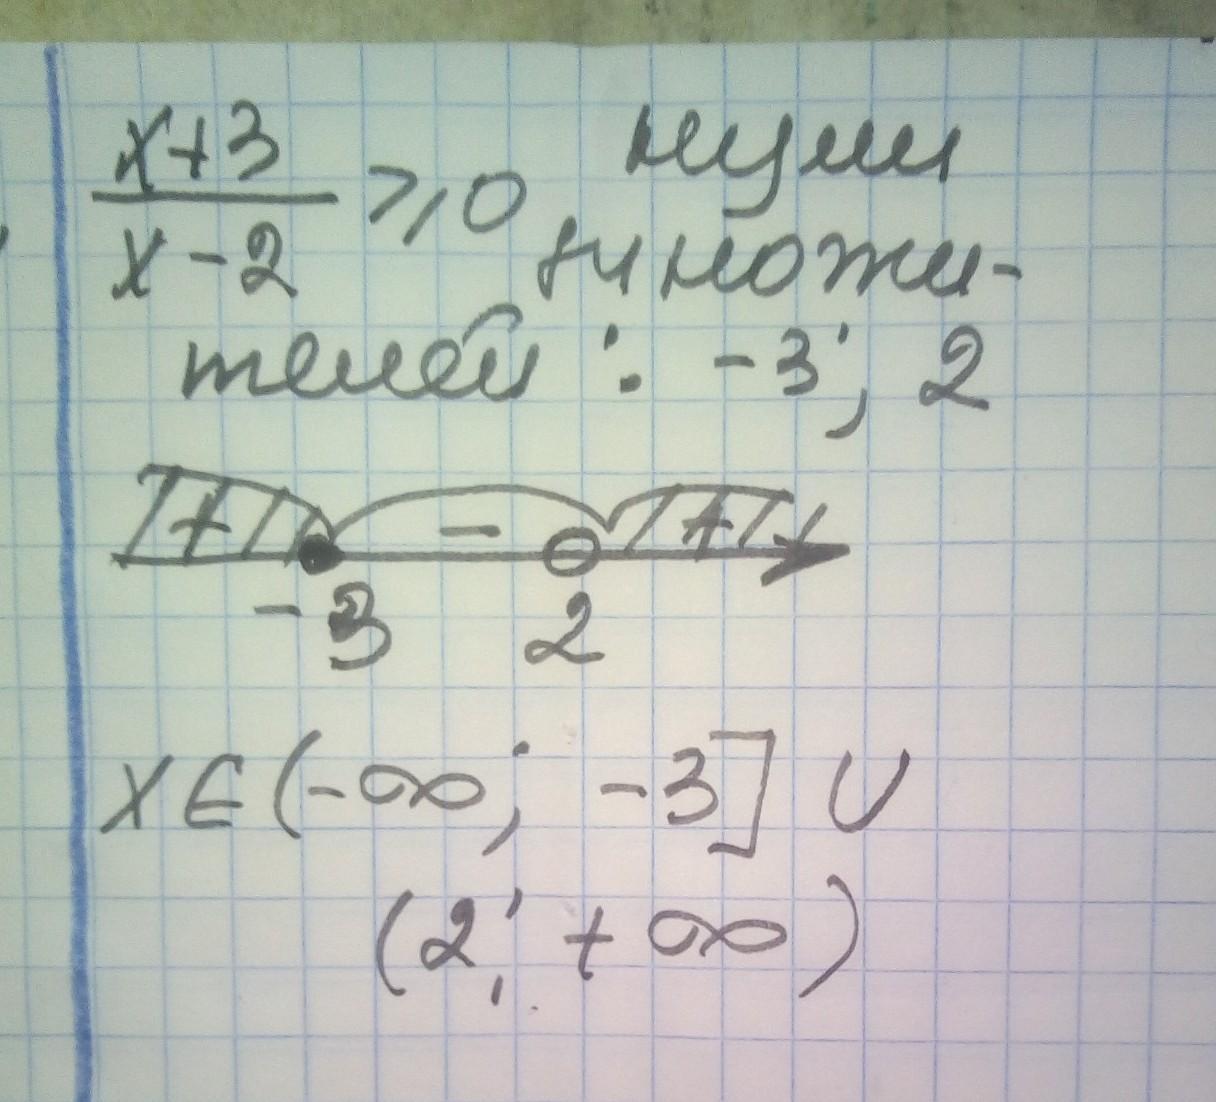 x+3
x-2
⩾0 нули
множи-
телей : -3; 2
+ - +
-3 2
x∈(-∞; -3] ∪
(2; +∞)